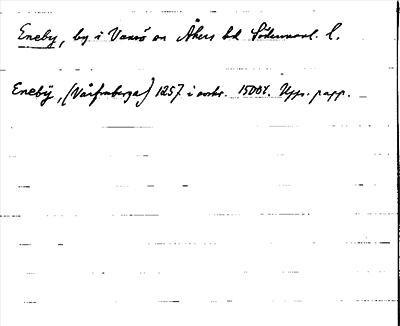 Eneby, by i Vansö sn Åkers hd Södermanl. l.
Enebÿ, (Vårfruberga) 1257 i avskr. 1500t. Upps. papp.